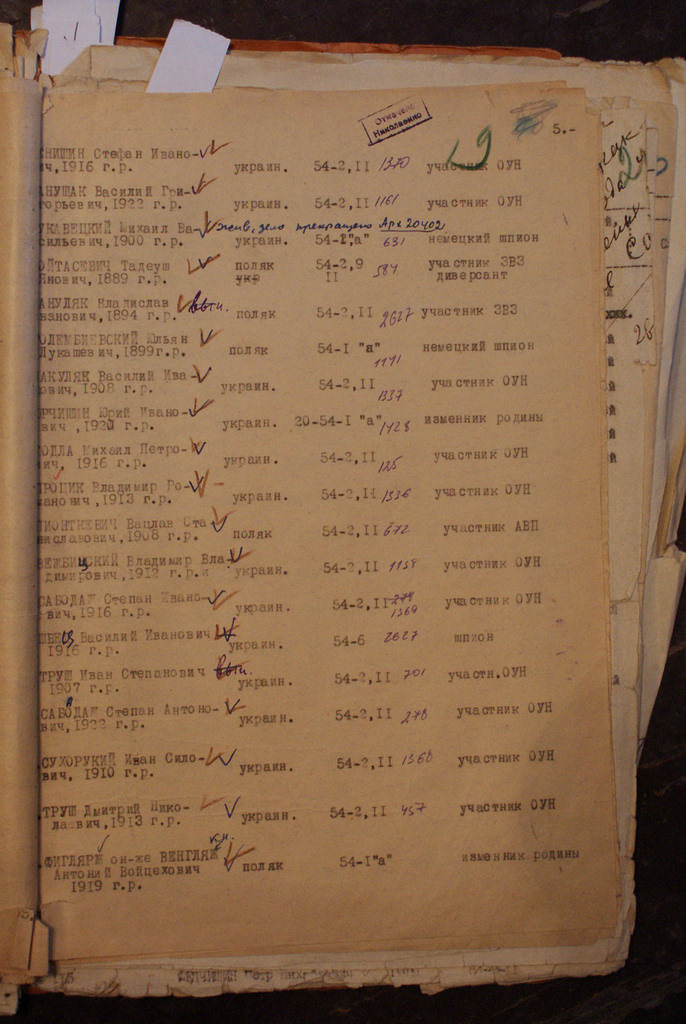 .1
Отмечено
Николаенко
19
5.-
НИШИН Стефан Ивано-
ич,1916 г.р. украин. 54-2,II 1370 участник ОУН
АНУЩАК Василий Гри-
горьевич,1922 г.р. украин. 54-2,II 1161 участник ОУН
жив, дело прекращено Арх 20402
УКАВЕЦКИЙ Михаил Ва-
сильевич,1900 г.р. украин. 54-I"а" 631 немецкий шпион
ОЙТАСЕВИЧ Тадеуш поляк 54-2,9 участник ЗВЗ
Янович,1889 г.р. укр II 584 диверсант
АНУЛЯК Владислав выч.
ванович,1894 г.р. поляк 54-2,II 2627 участник ЗВЗ
ОЛЕМБИЕВСКИЙ Юльян
Лукашевич,1899г.р. поляк 54-I "а" 1191 немецкий шпион
АКУЛЯК Василий Ива-
ович,1908 г.р. украин. 54-2,II 1337 участник ОУН
РЧИШИН Юрий Ивано-
вич ,1920 г.р. украин. 20-54-I "а" 1428 изменник родины
ОДЛА Михаил Петро-
ич, 1916 г.р. украин. 54-2,II 125 участник ОУН
РОЦИК Владимир Ро-
манович,1913 г.р. украин. 54-2,II 1336 участник ОУН
ПИОНТКЕВИЧ Вацлав Ста
ниславович,1908 г.р. поляк 54-2,II 672 участник АВП
ВЕЖБИЦКИЙ Владимир Вла-
димирович,1912 г.р. украин. 54-2,II 1158 участник ОУН
САБОДАШ Степан Ивано-
вич,1916 г.р. украин. 54-2,II 278 1369 участник ОУН
ШВЕЦ Василий Иванович
1916 г.р. украин. 54-6 2627 шпион
ТРУШ Иван Степанович выч.
1907 г.р. украин. 54-2,II 701 участн.ОУН
САБОДАШ Степан Антоно-
вич,1922 г.р. украин. 54-2,II 278 участник ОУН
СУХОРУКИЙ Иван Сило-
вич, 1910 г.р. украин. 54-2,II 1368 участник ОУН
ТРУШ Дмитрий Нико-
лаевич,1913 г.р. украин. 54-2,II 457 участник ОУН
ФИГЛЯРЖ он-же ВЕНГЛЯЖ
Антоний Войцехович поляк 54-I"а" изменник родины
1919 г.р.
26